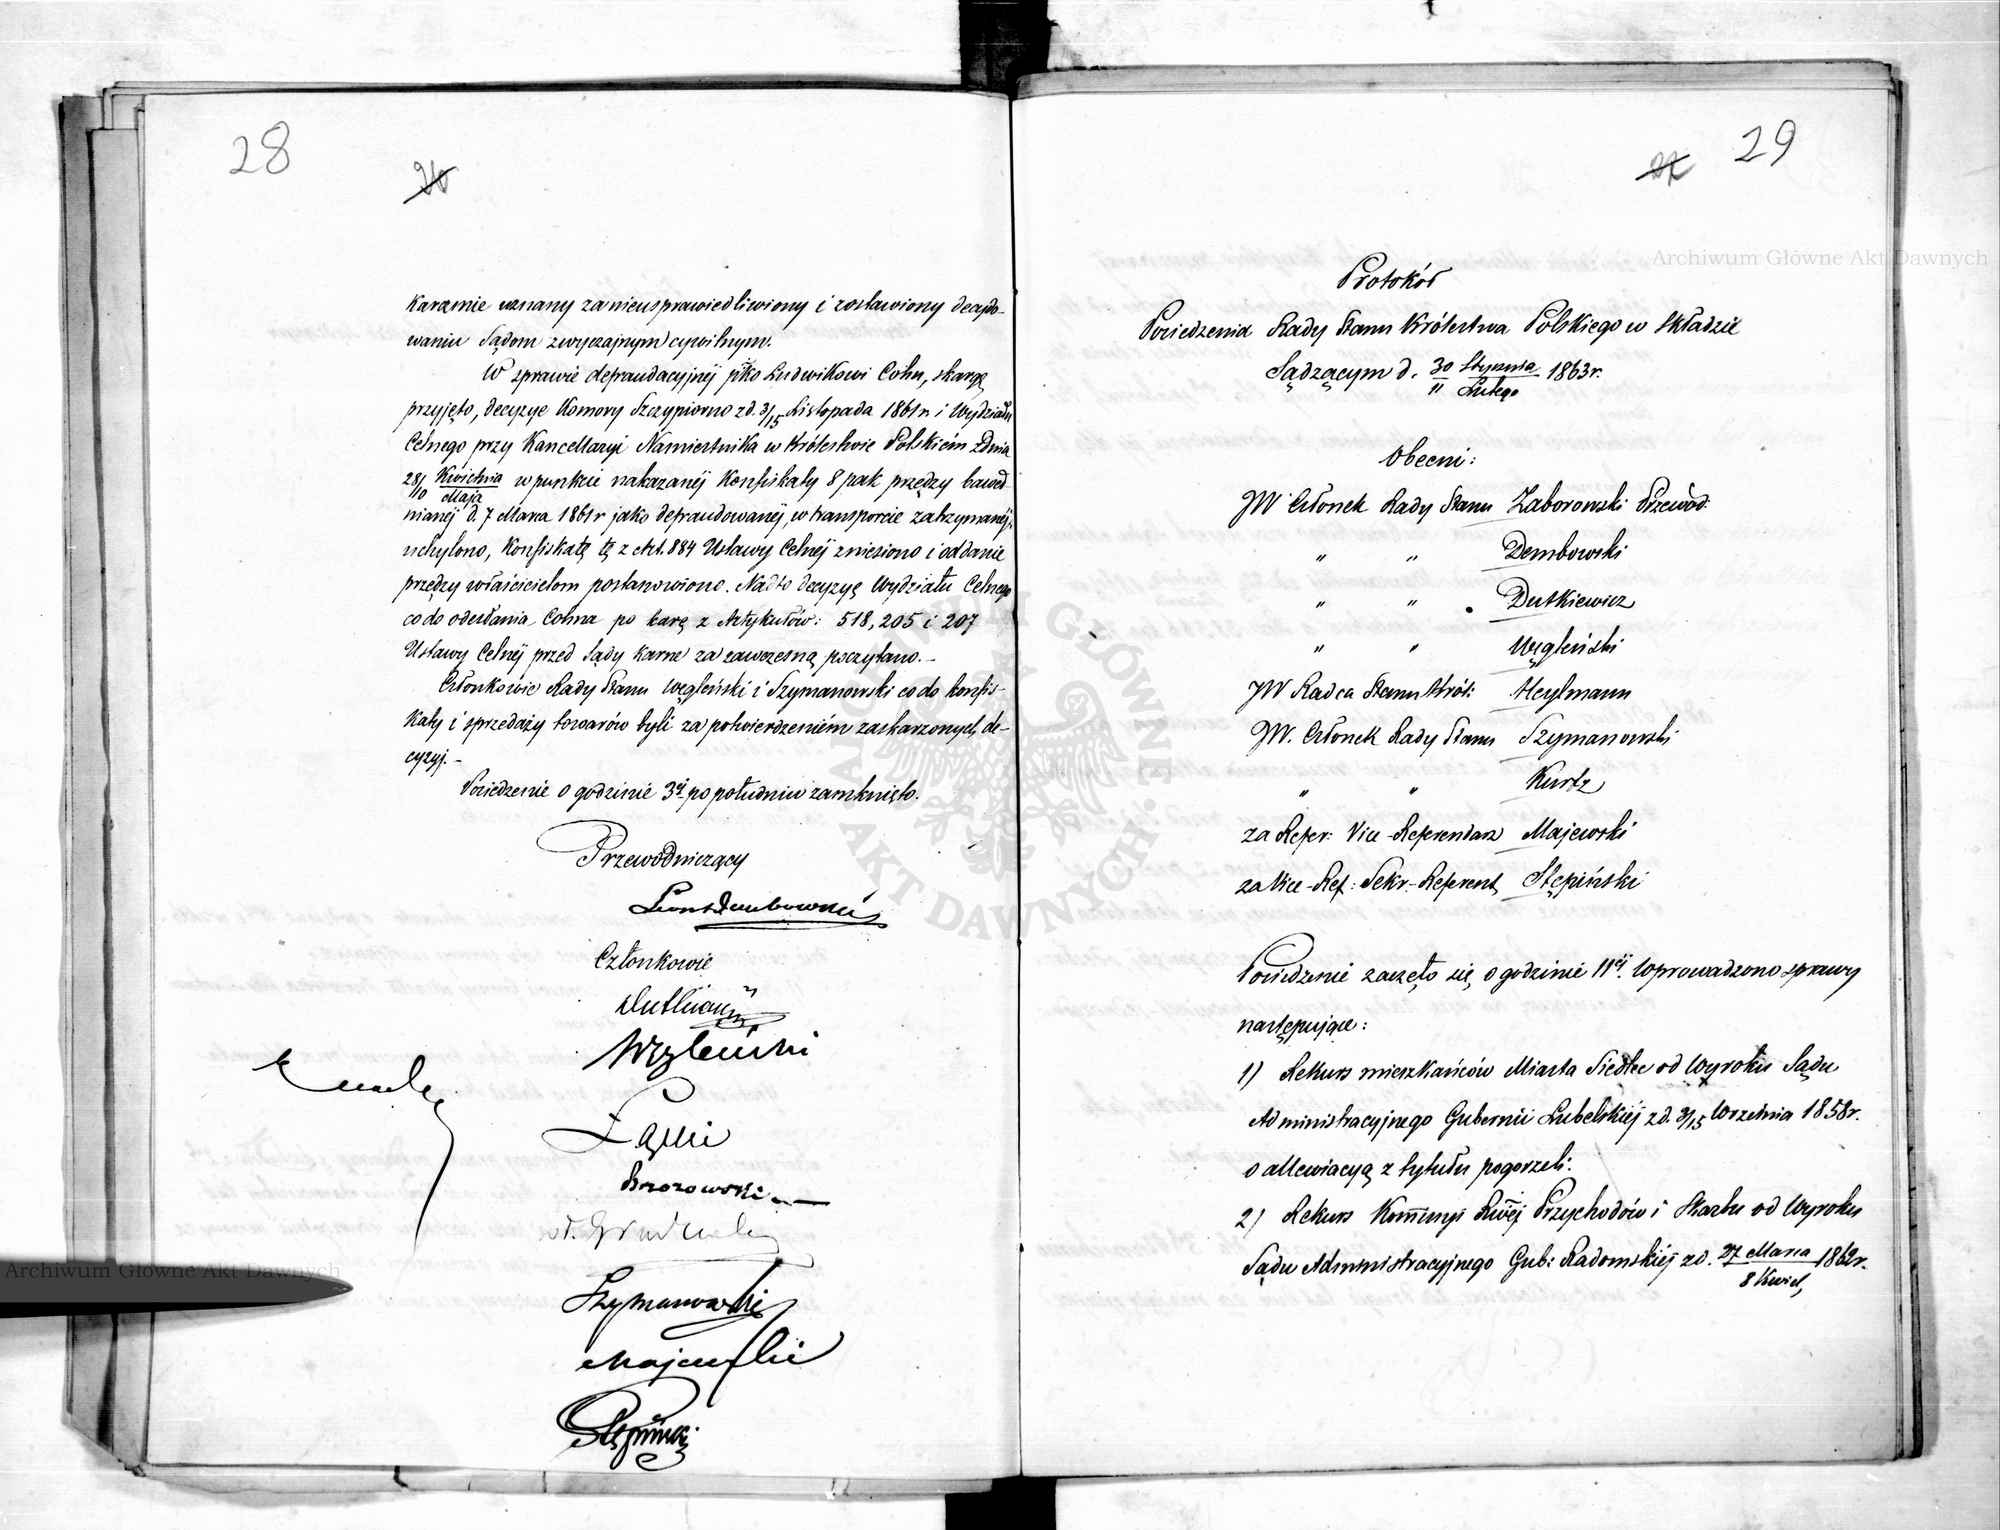 28
26
karzmie uznany za nieusprawiedliwiony i zostawiony decydo-
waniu Sądom zwyczajnym cywilnym.
W sprawie defraudacyjnéj pko Ludwikowi Cohn, skargę
przyjęto, decyzye Komory Szczypiorno z d. 3/15 Listopada 1861 r. i Wydziału
Celnego przy Kancellaryi Namiestnika w Królestwie Polskiém z dnia
28/10 Kwietnia/Maja w punkcie nakazanéj Konfiskaty 8 pak przędzy baweł-
nianéj d. 7 Marca 1861 r jako defraudowanéj, w transporcie zatrzymanéj,
uchylono, Konfiskatę tę z Art. 884 Ustawy Celnéj zniesiono i oddanie
przędzy właścicielom postanowiono. Nadto decyzyę Wydziału Celnego
co do odesłania Cohna po karę z Artykułów: 518, 205 i 207
Ustawy Celnéj przed Sądy Karne za zawczesną poczytano. –
Członkowie Rady Stanu Węgleński i Szymanowski co do konfis-
katy i sprzedaży towarów byli za potwierdzeniém zaskarżonych de-
cyzyj. –
Posiedzenie o godzinie 3éj po południu zamknięto.
Przewodniczący
Leon Dembowski
Członkowie
Węgleński
Łąski
Brzozowski
Szymanowski
Majewski
Stępiński
29
27
Protokół
Posiedzenia Rady Stanu Królestwa Polskiego w Składzie
Sądzącym d. 30 Stycznia/11 Lutego 1863 r.
Obecni:
JW Członek Rady Stanu Zaborowski Przewod:
" " Dembowski
" " Dutkiewicz
" " Węgleński
JW Radca Stanu Król: Heylmann
JW. Członek Rady Stanu Szymanowski
" " Kurtz
za Refer: Vice-Referendarz Majewski
za Vice-Ref: Sekr.-Referent Stępiński
Posiedzenie zaczęło się o godzinie 11éj. Wprowadzono sprawy
następujące:
1) Rekurs mieszkańców Miasta Siedlec od Wyroku Sądu
Administracyjnego Gubernii Lubelskiéj z d. 3/15 Września 1858 r.
o allewiacyą z tytułu pogorzeli.
2) Rekurs Kommyi Rwéj Przychodów i Skarbu od Wyroku
Sądu Administracyjnego Gub: Radomskiéj z d. 27 Marca/8 Kwiet, 1862 r.
Archiwum Główne Akt Dawnych
Archiwum Główne Akt Dawnych
ARCHIWUM GŁÓWNE AKT DAWNYCH